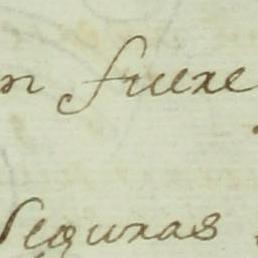 n fuere
seguras